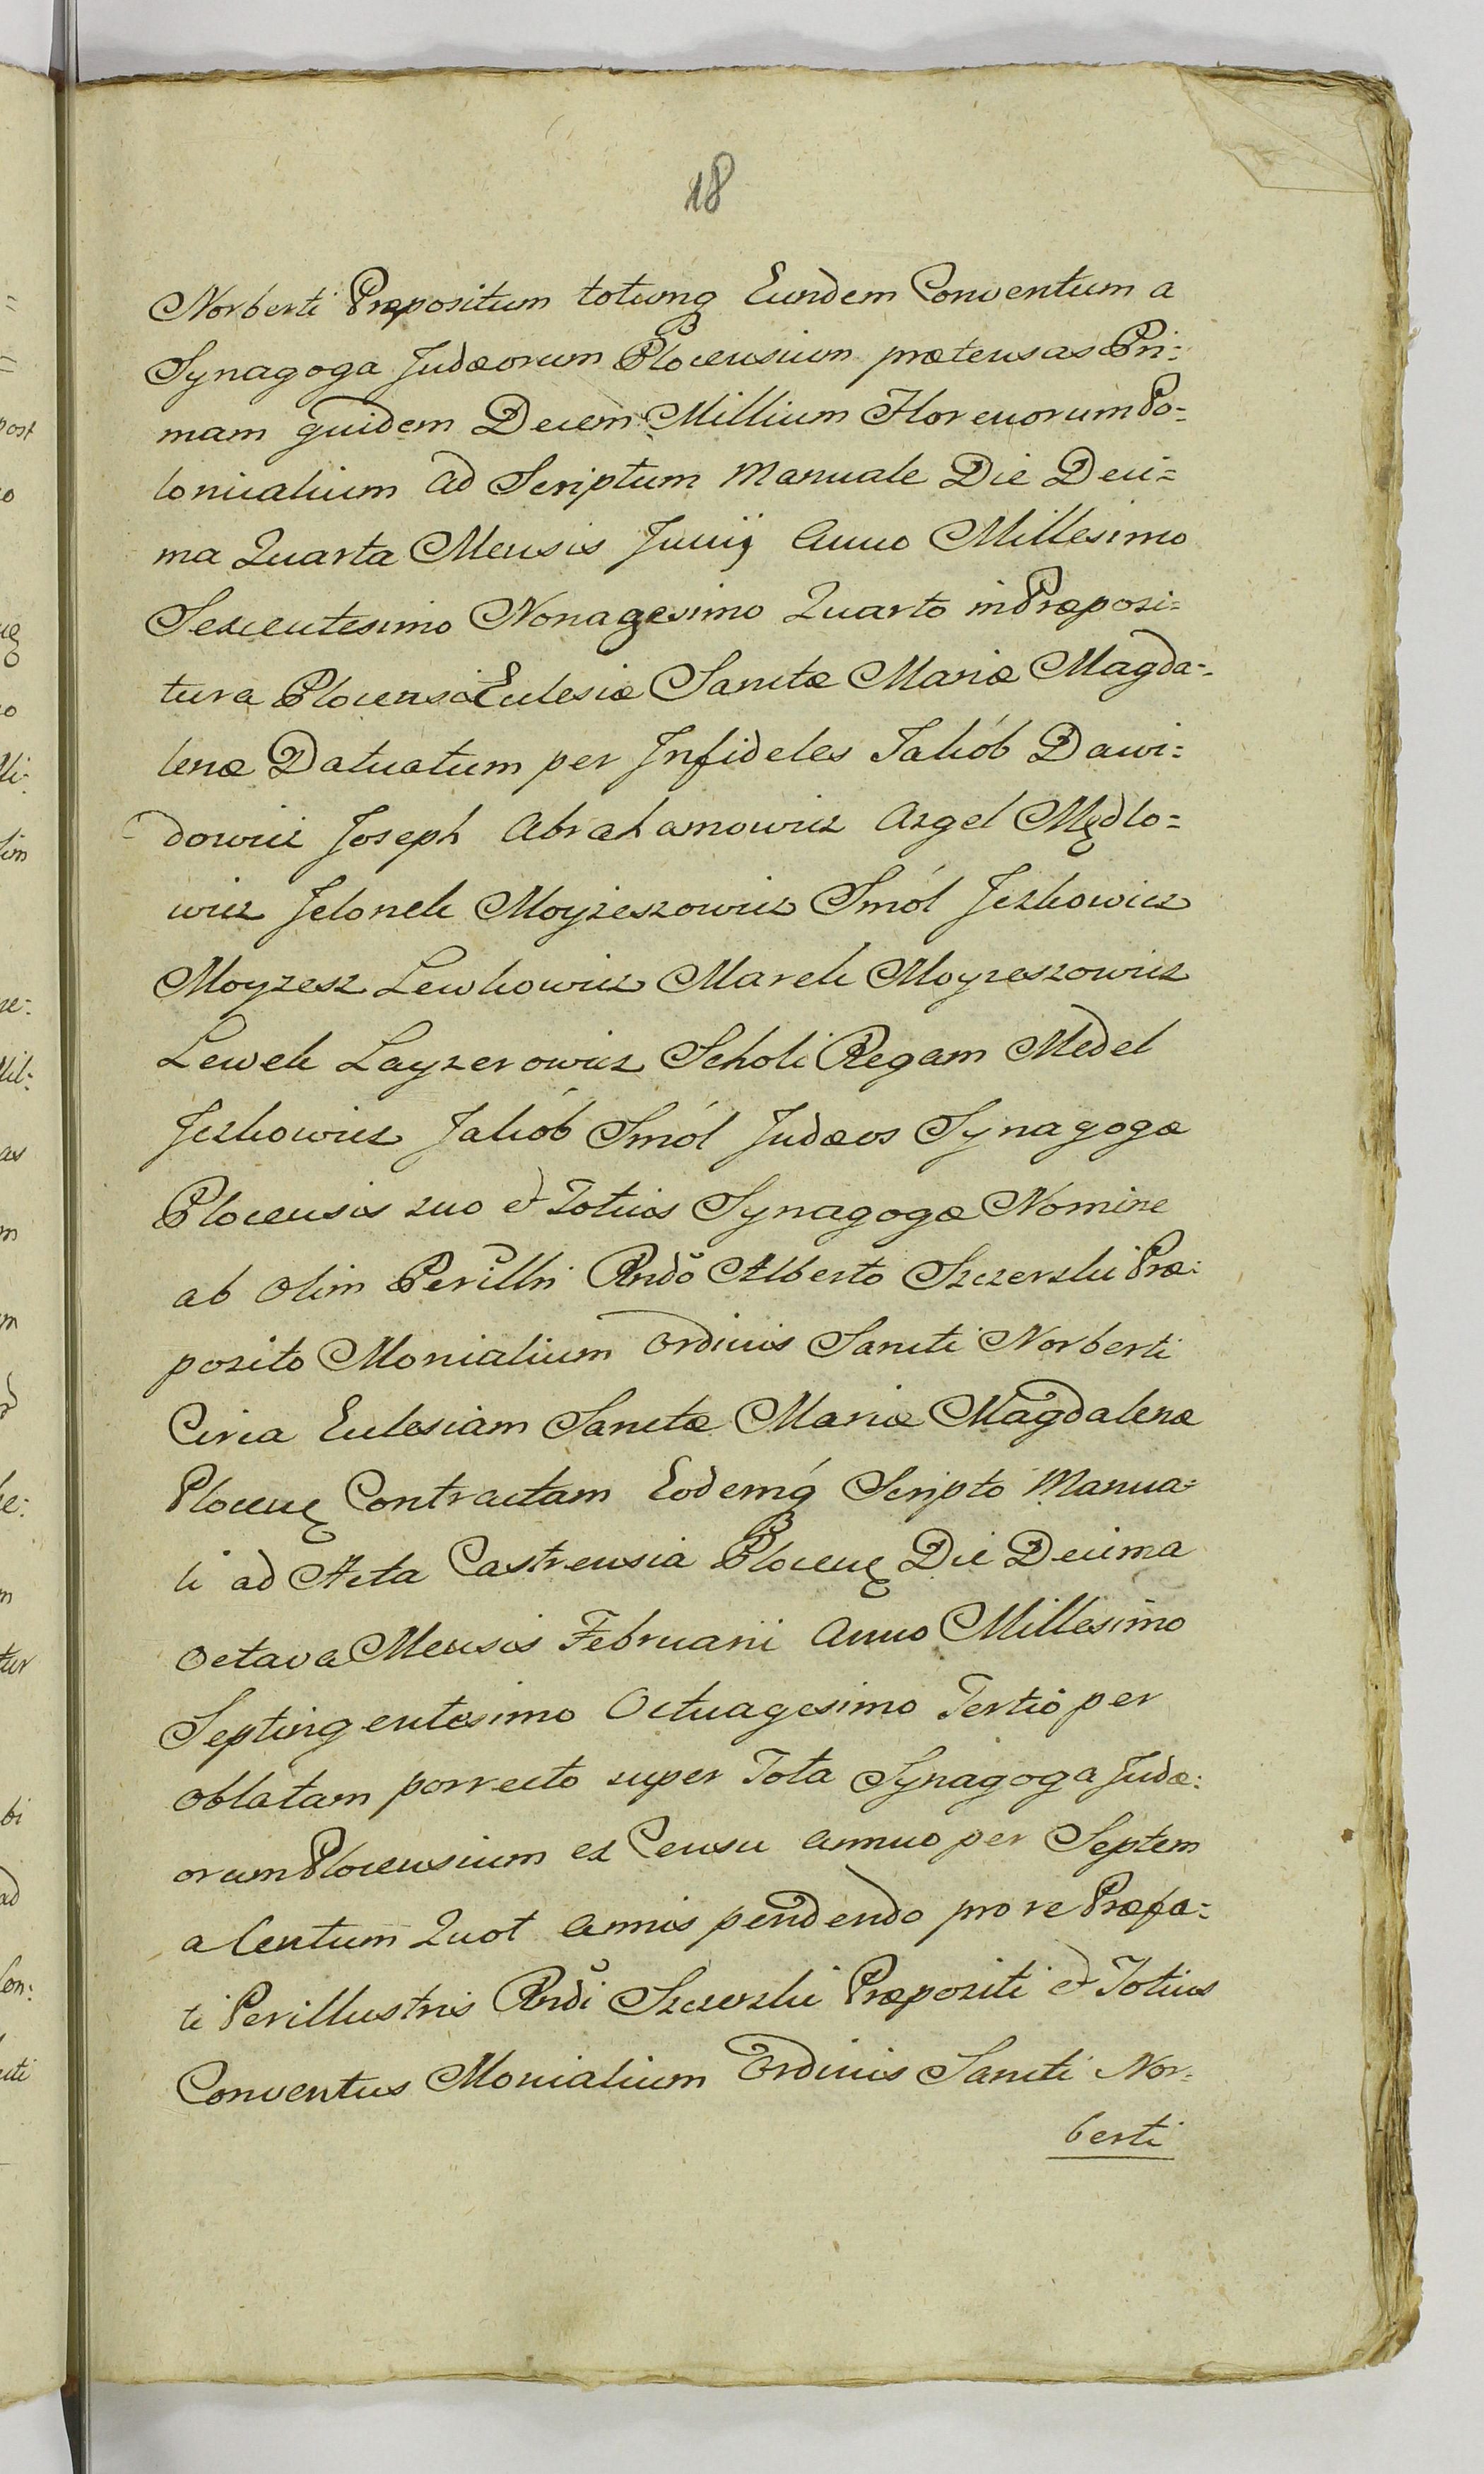 18
Norberti Præpositum totumq Eundem Conventum a
Synagoga Judæorum Plocensium prætensas Pri=
mam quidem Decem Millium Florenorum Po=
lonicalium ad Scriptum Manuale Die Deci=
ma Quarta Mensis Junij Anno Millesimo
Sexcentesimo Nonagesimo Quarto in Præposi=
tura Plocensi Eclesiæ Sanctæ Mariæ Magda=
lenæ Datuatum per Infideles Jakób Dawi=
dowicz Joseph Abrahamowicz Azgel Mędlo=
wicz Jelonek Moyżeszowicz Smól Jczkowicz
Moyzesz Lewkowicz Marek Moyzeszowicz
Lewek Layzerowicz Scholi Regam Medel
Jczkowicz Jakób Smól Judæos Synagogæ
Plocensis suo et Totius Synagogæ Nomine
ab olim Perillri Rndo Alberto Szczerski Præ=
posito Monialium Ordinis Sancti Norberti
Circa Eclesiam Sanctæ Mariæ Magdalenæ
Plocenę Contractam Eodemq́ Scripto Manua=
li ad Acta Castrensia Plocenę Die Decima
Octava Mensis Februarii Anno Millesimo
Septingentesimo Octuagesimo Tertio per
oblatam porrecto super Tota Synagoga Judæ=
orum Plocensium ex Censu annuo per Septem
a Centum Quot annis pendendo pro re Præfa=
ti Perillustris Rndi Szczerski Præpositi et Totius
Conventus Monialium Ordinis Sancti Nor=
berti